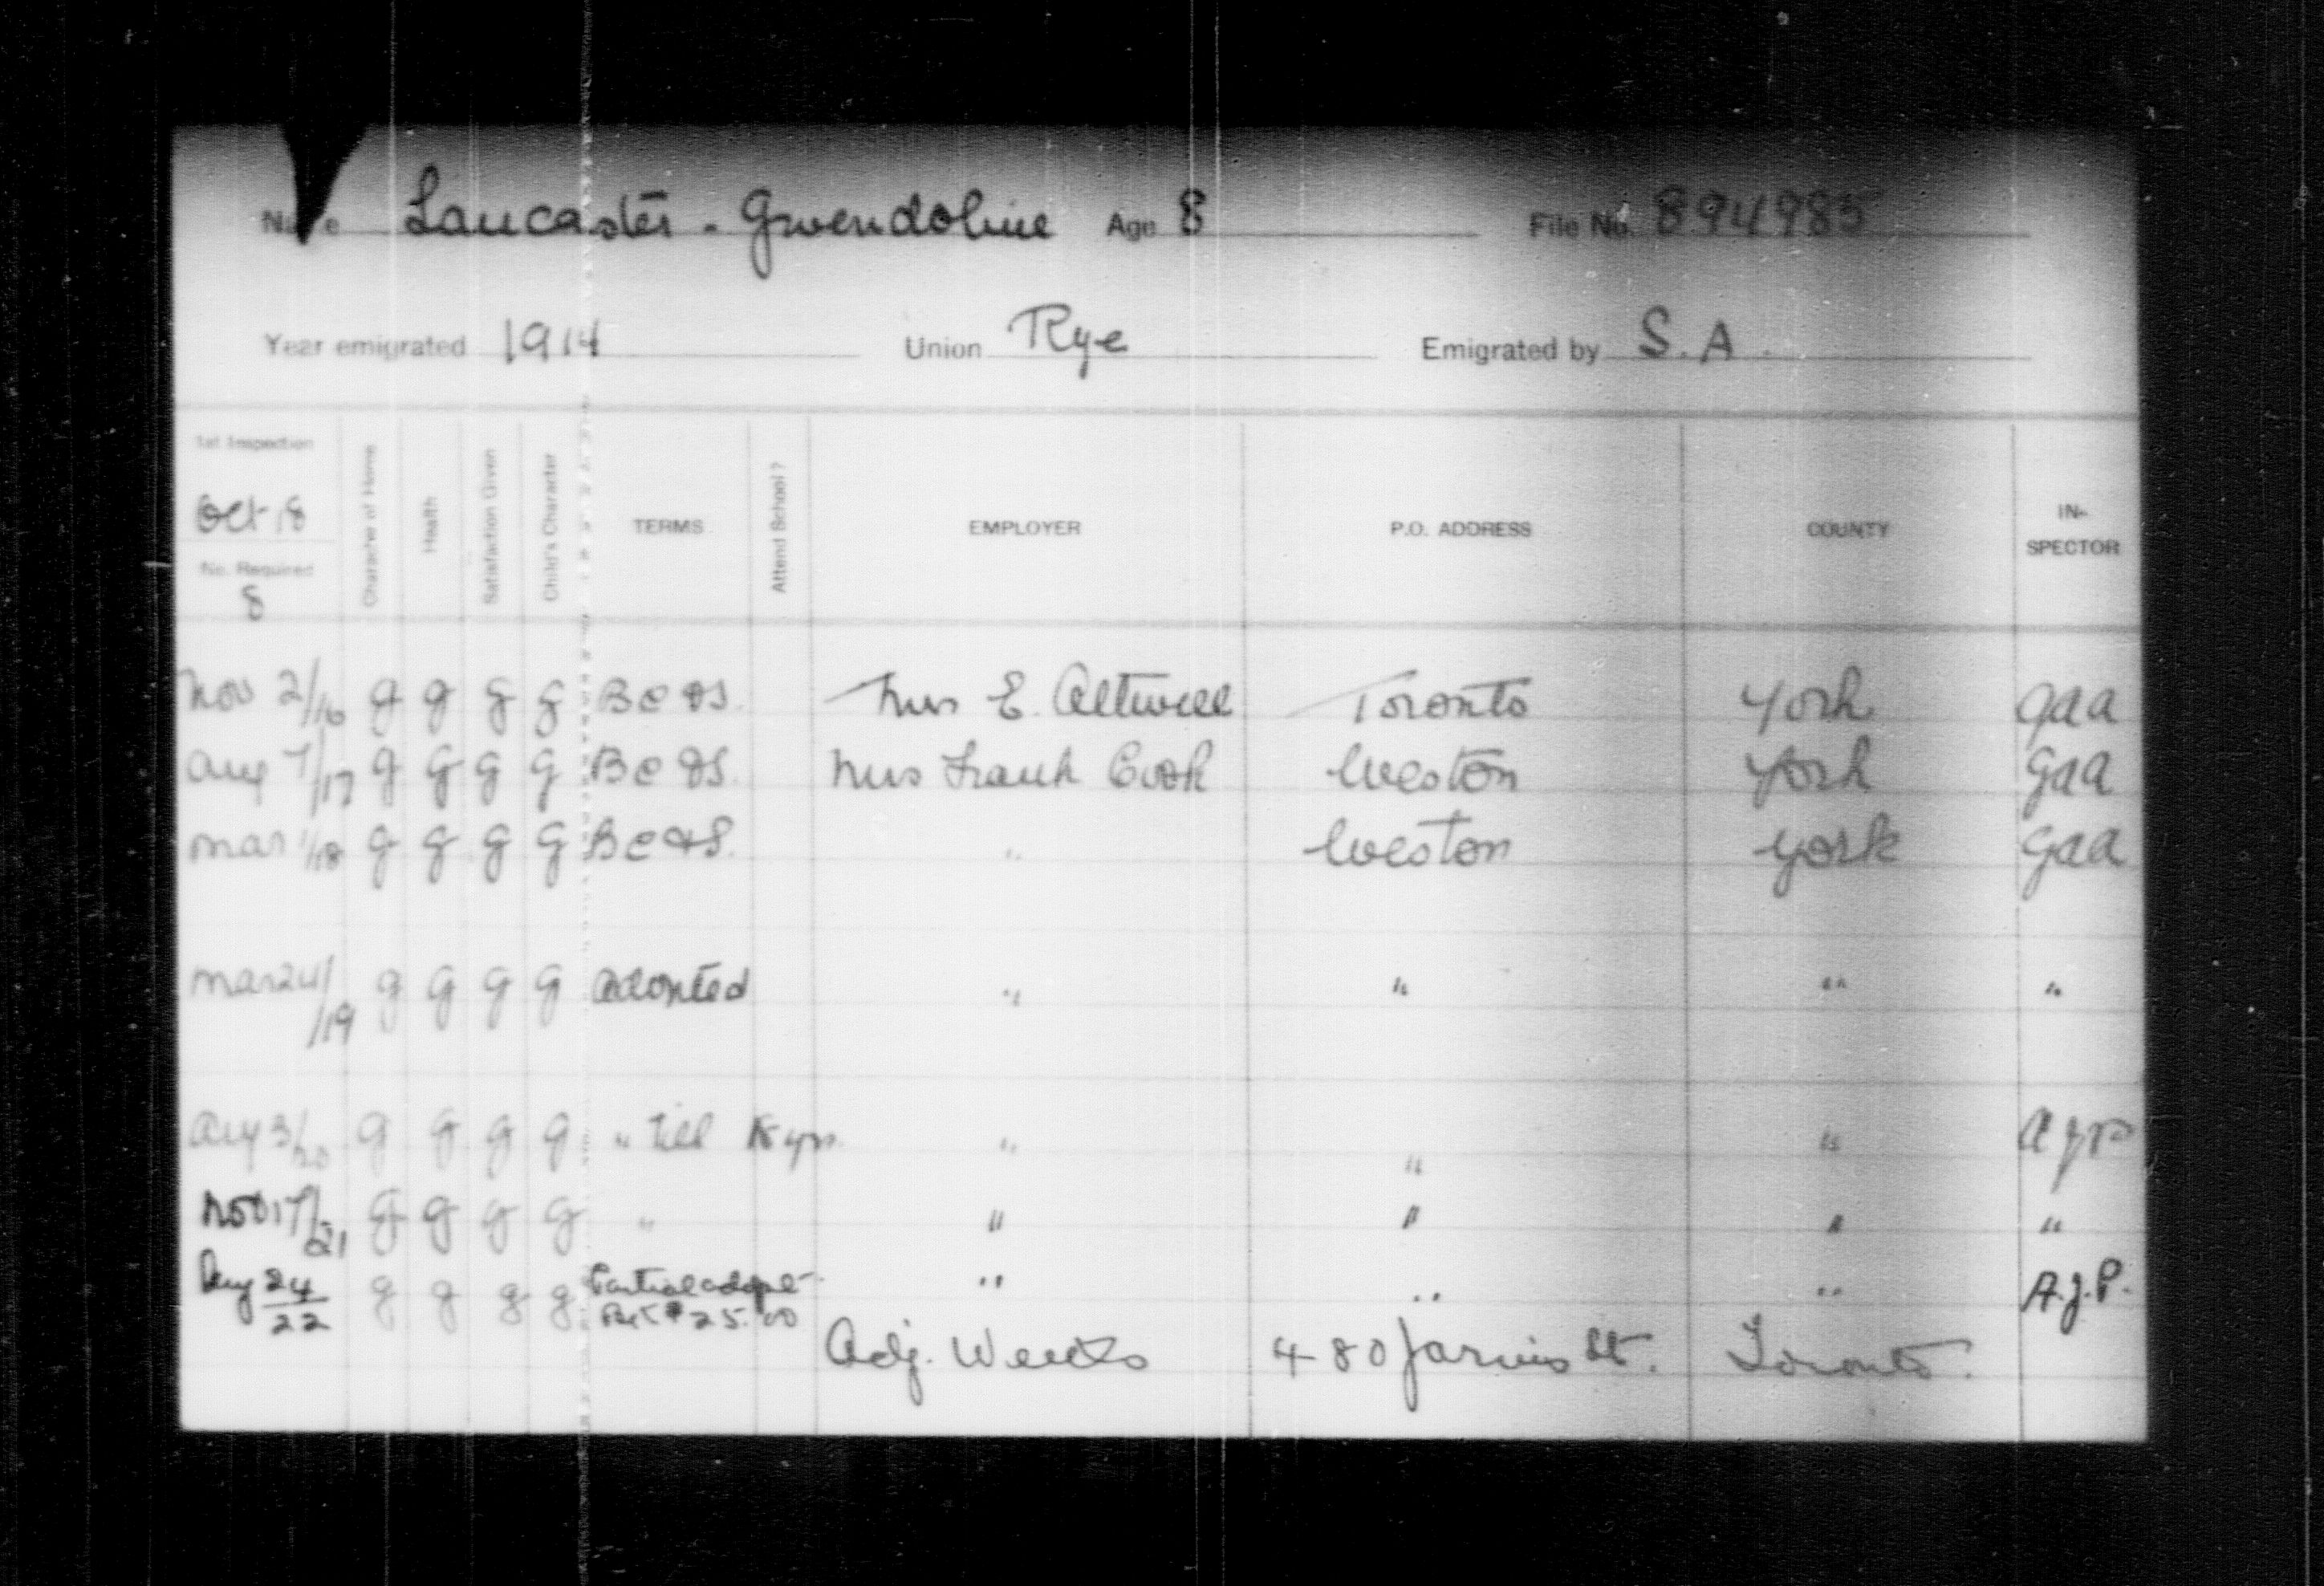 Name Lancaster - Gwendoline Age 8 File No. 894985
Year emigrated 1914 Union Rye Emigrated by S. A.
1st Inspection Oct 18 No. Required 8 Character of Home Health Satisfaction Given Child's Character TERMS Attend School? EMPLOYER P.O. ADDRESS COUNTY IN-SPECTOR
Nov 2/16 g g g g B C & S. Mrs E. Attwell Toronto York gaa
Aug 7/17 g g g g B C & S. Mrs Frank Cook Weston York gaa
Mar 1/18 g g g g B C & S. " Weston York gaa
Mar 24/19 g g g g adopted " " " "
Aug 3/20 g g g g " till 18 yrs. " " " a j p
Nov 17/21 g g g g " " " " "
Aug 24/22 g g g g Partial adopt- $25.00 " " " A.J.P.
Adj. 480 Jarvis St. Toronto.